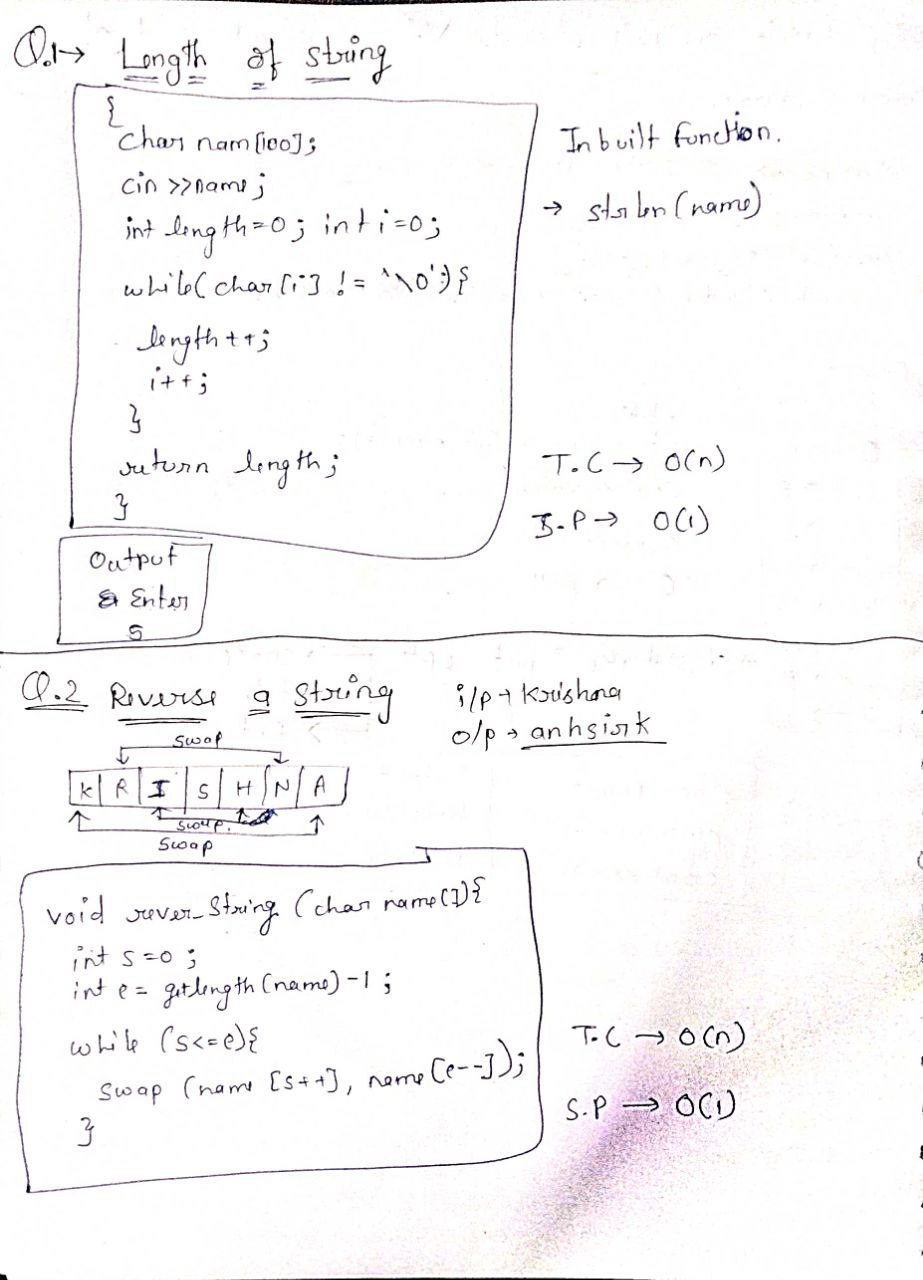 Q.1→ Length of string
{
char nam[100];
cin >>name;
int length=0; int i=0;
while( char[i] != '\0'){
length++;
i++;
}
return length;
}
Inbuilt function.
→ strlen(name)
T.C → O(n)
S.P → O(1)
Output
Enter
5
Q.2 Reverse a string
i/p → Krishna
o/p → anhsirk
swap
K R I S H N A
swap.
swap
void rever_String (char name[]){
int s=0;
int e= getlength(name)-1;
while (s<=e){
swap (name [s++], name[e--]);
}
T.C → O(n)
S.P → O(1)